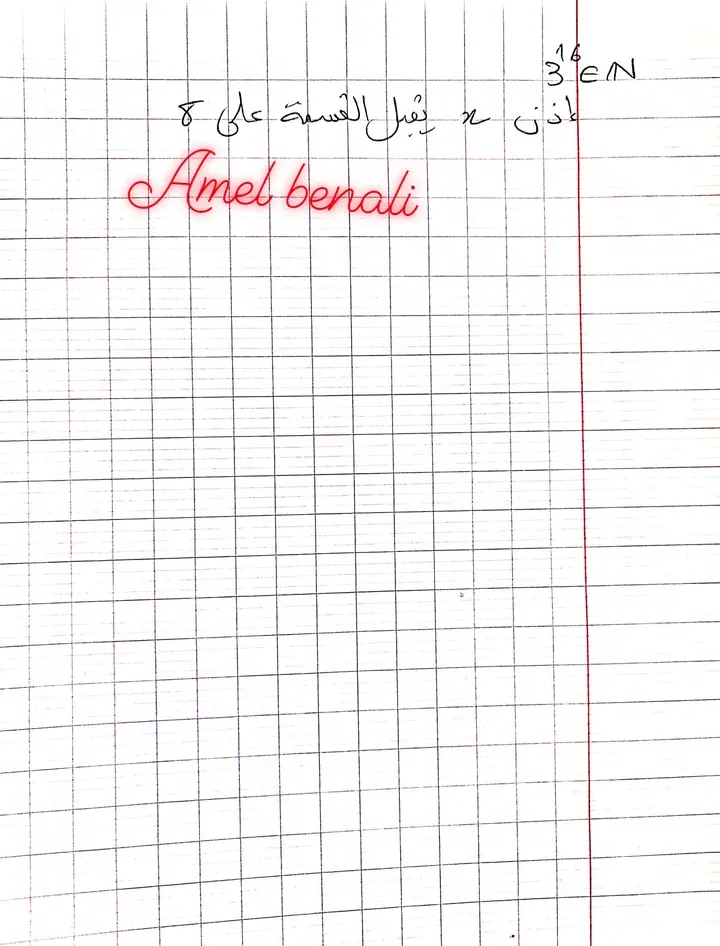 3¹⁶ ∈ ℕ
إذن x يقبل القسمة على 8
Amel benali